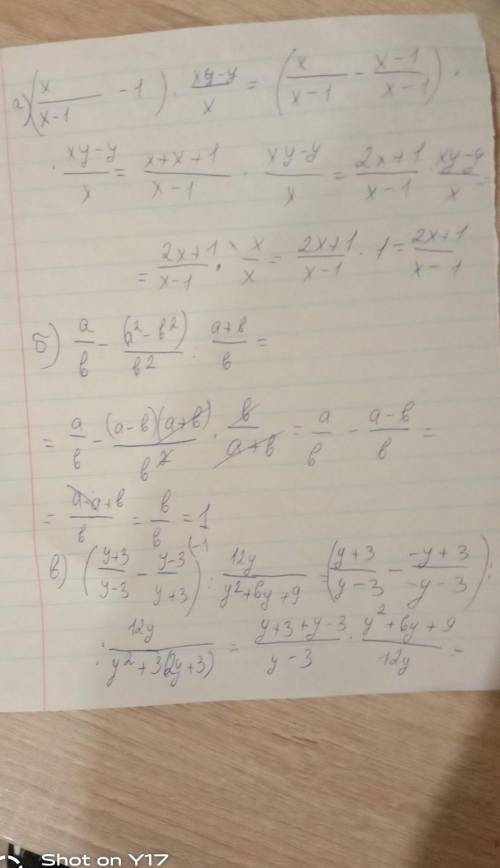 а) (x/(x-1) - 1) · (xy-y)/x = (x/(x-1) - (x-1)/(x-1)) ·
· (xy-y)/x = (x+x+1)/(x-1) · (xy-y)/x = (2x+1)/(x-1) · (xy-y)/x
= (2x+1)/(x-1) · x/x = (2x+1)/(x-1) · 1 = (2x+1)/(x-1)
б) a/b - (a²-b²)/b² : (a+b)/b =
= a/b - (a-b)(a+b)/b² · b/(a+b) = a/b - (a-b)/b =
= (a-a+b)/b = b/b = 1
в) ((y+3)/(y-3) - (y-3)/(y+3) (-1) : 12y/(y²+6y+9) = ((y+3)/(y-3) - (-y+3)/(-y-3)) :
: 12y/(y²+3(2y+3)) = (y+3+y-3)/(y-3) · (y²+6y+9)/12y =
Shot on Y17